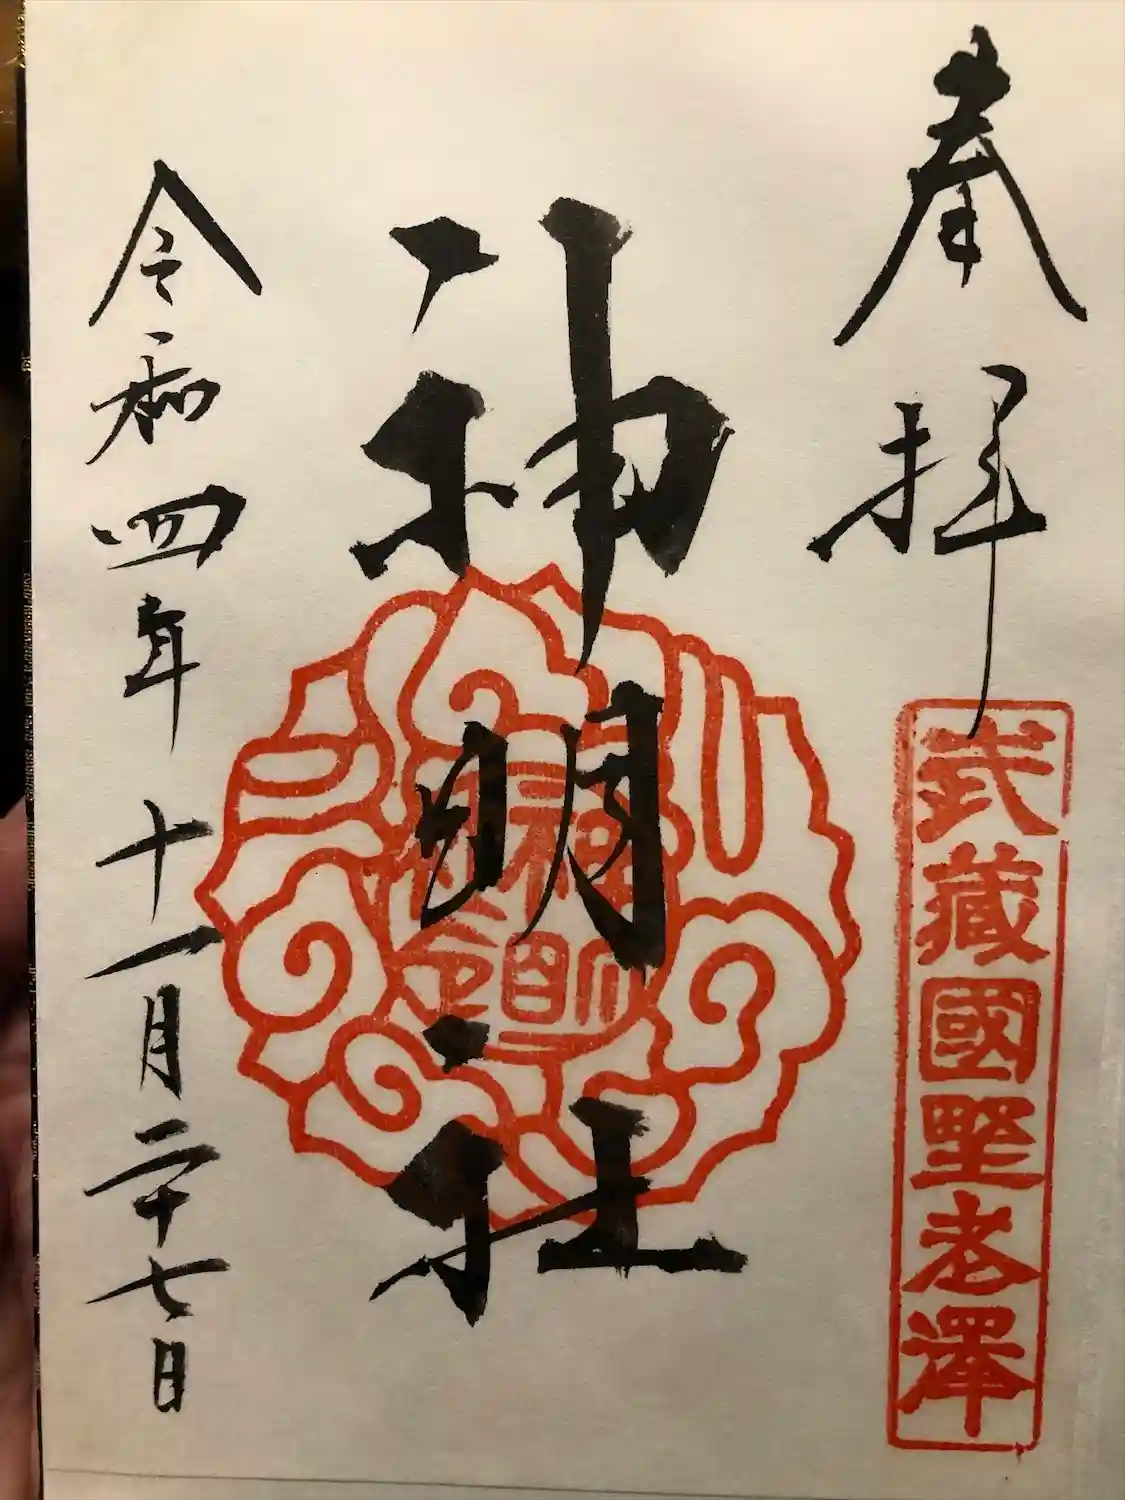 奉拝
武藏國野老澤
神明社
令和四年十一月二十七日